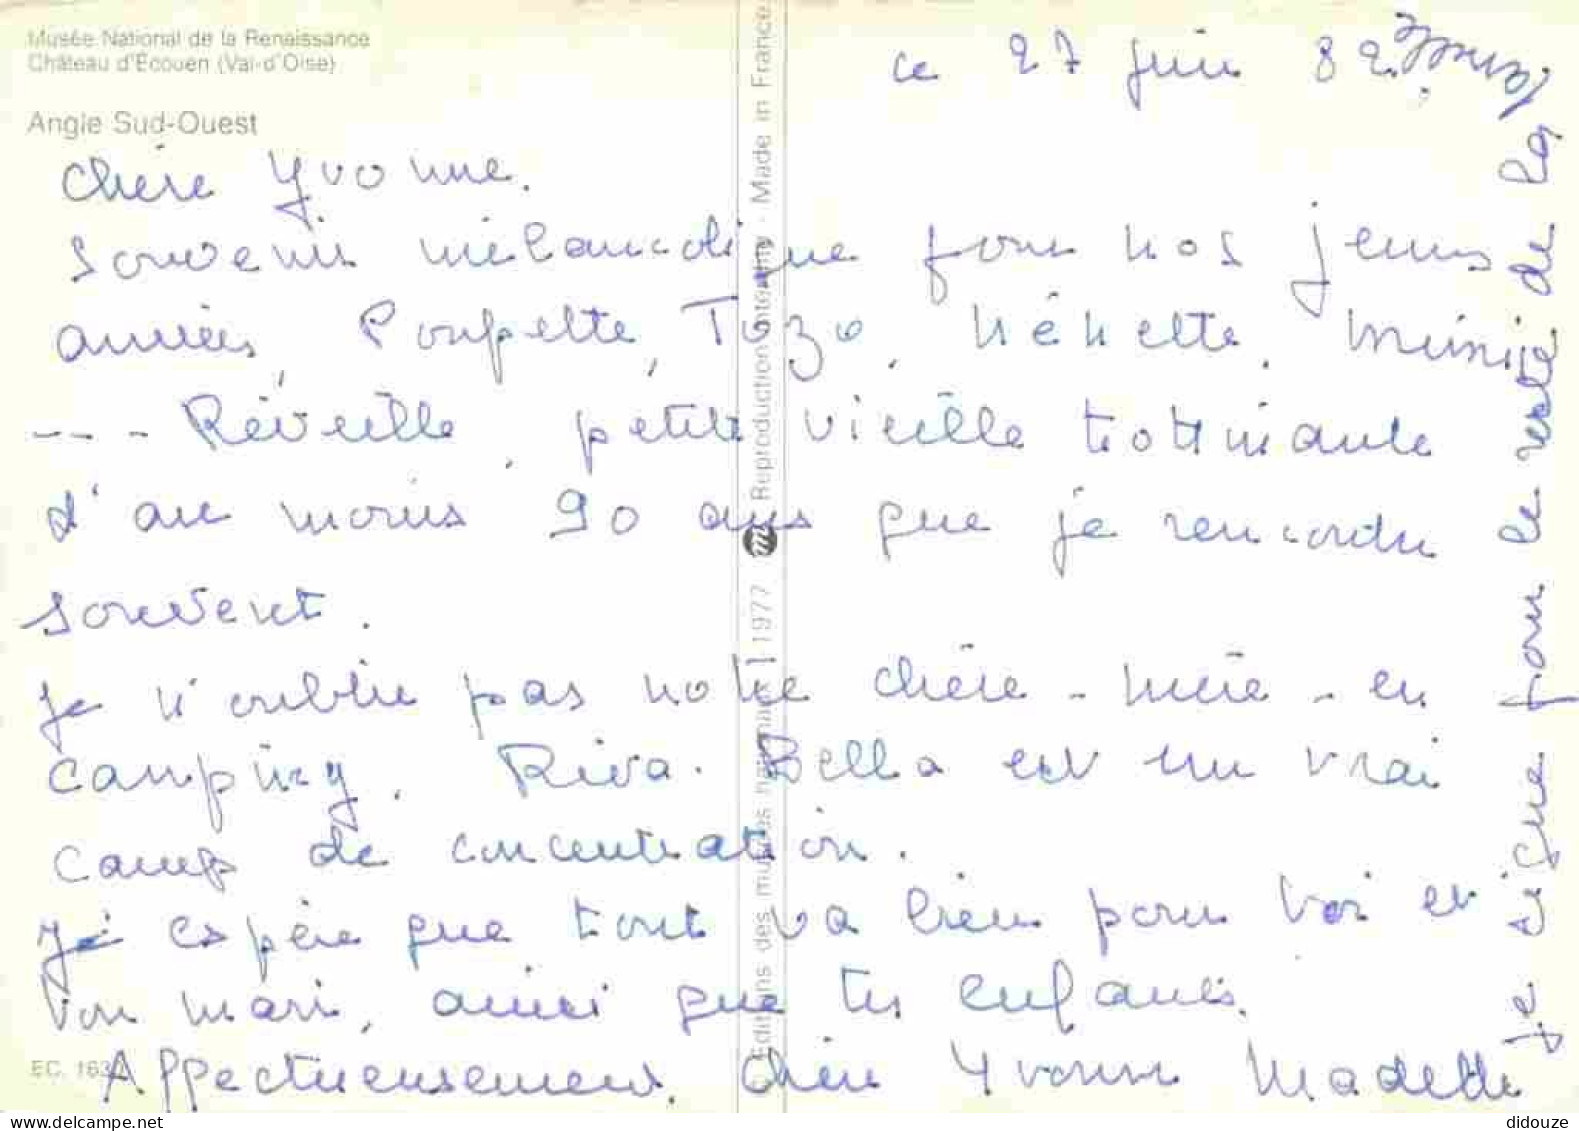 Musée National de la Renaissance
Château d'Écouen (Val-d'Oise)
Angle Sud-Ouest
ce 27 juin 82
Chère Yvonne.
Souvenir mélancolique pour nos jeunes
années, Poupette, Tozo, Nénette, Minige
--- Réveille, petite vieille trottinante
d'au moins 90 ans que je rencontre
souvent.
Je n'oublie pas notre chère-mère-en
camping. Riva-Bella est un vrai
camp de concentration.
Je espère que tout va bien pour toi et
ton mari, ainsi que tes enfants.
Affectueusement, Chère Yvonne Madette
Je signe pour le reste de la famille
EC. 163
Editions des musées nationaux 1977 Reproduction interdite · Made in France
didouze